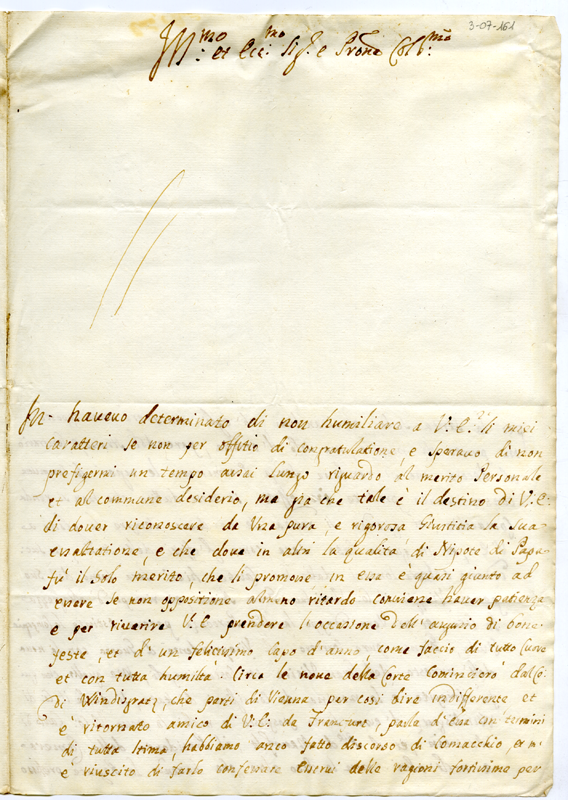 3-07-161
Ill:mo et Ecc:mo Sig.r e Prone Col.mo
M'havevo determinato di non humiliare a V: E: li miei
caratteri se non per offitio di congratulatione, e speravo di non
prefigermi un tempo assai lungo riguardo al merito Personale
et al commune desiderio, ma gia che tale è il destino di V: E:
di dover riconoscere da Una pura, e rigorosa Giustitia la sua
essaltatione, e che dove in altri la qualità di Nipote di Papa
fù il solo merito, che li promosse in essa è quasi giunto ad
essere se non oppositione almeno ritardo conviene haver patienza
e per riverire V: E: prendere l'occasione dell'augurio di bone
feste, et d'un felicissimo Capo d'anno come faccio di tutto Cuore
et con tutta humiltà. Circa le nove della Corte Comincierò dal Co:
di Windisgratz, che partì di Vienna per così dire indifferente et
è ritornato amico di V: E: da Francfurt, parla di essa con termini
di tutta stima, habbiamo anco fatto discorso di Comacchio, et m'
è riuscito di farlo confessare esservi delle ragioni fortissime per